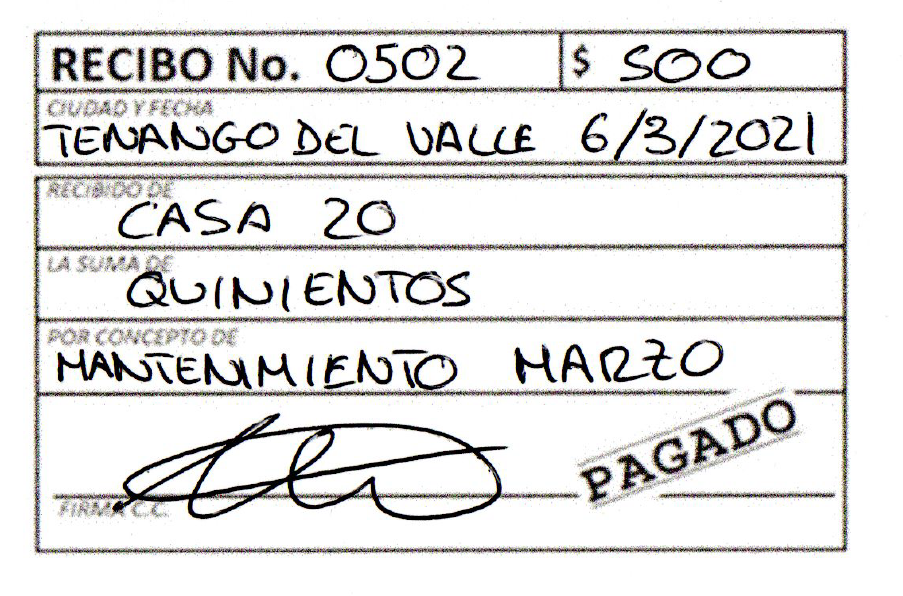 RECIBO No. 0502 $ 500
CIUDAD Y FECHA
TENANGO DEL VALLE 6/3/2021
RECIBIDO DE
CASA 20
LA SUMA DE
QUINIENTOS
POR CONCEPTO DE
MANTENIMIENTO MARZO
PAGADO
FIRMA C.C.